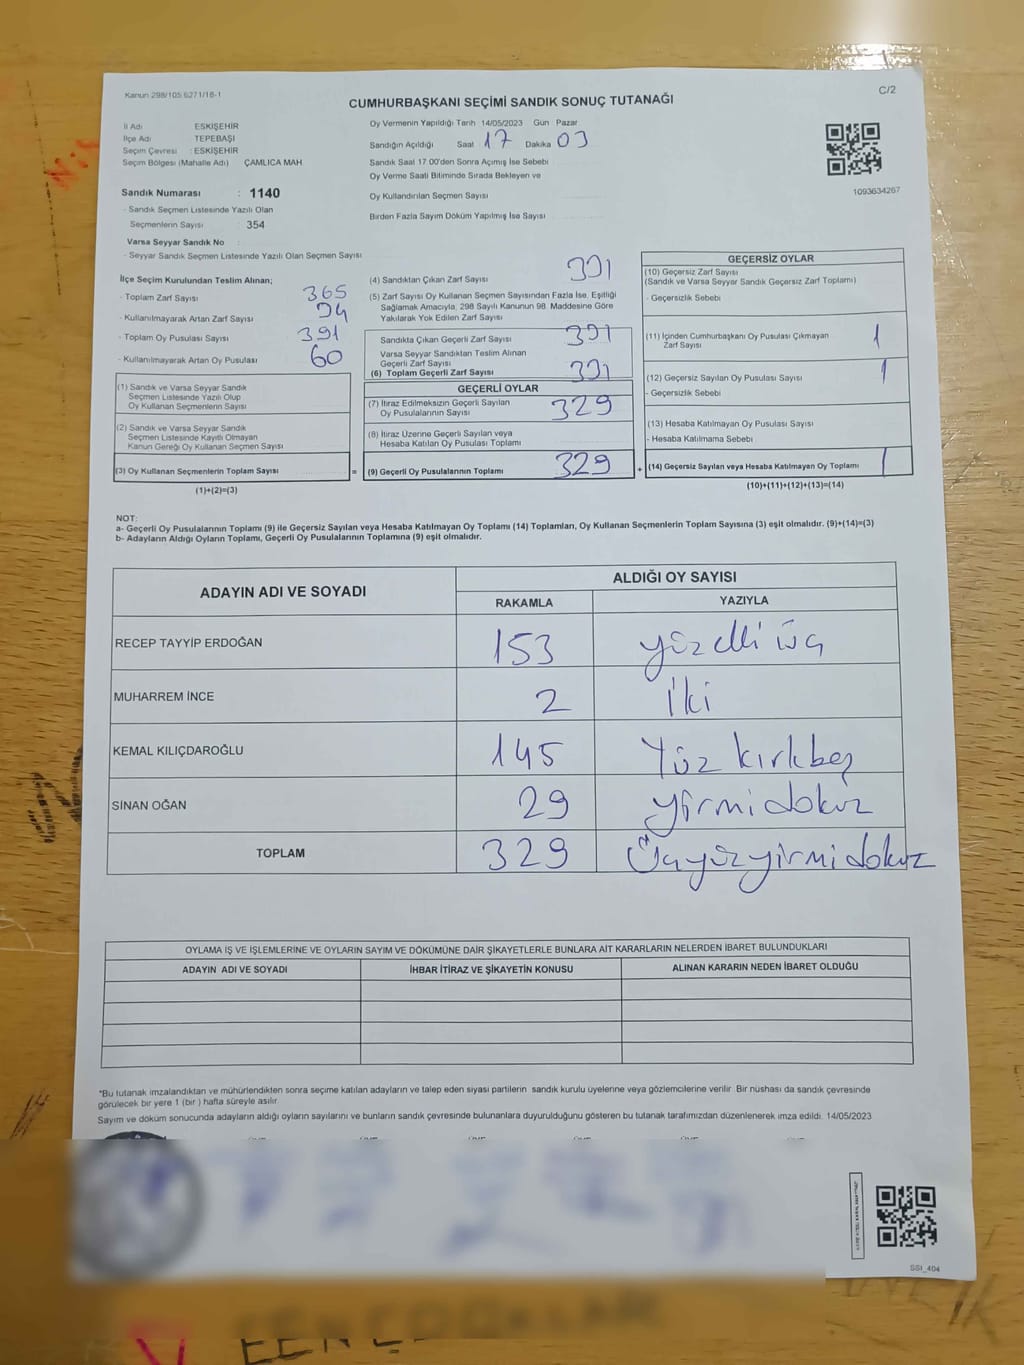 Kanun 298/105 6271/18-1
C/2
CUMHURBAŞKANI SEÇİMİ SANDIK SONUÇ TUTANAĞI
İl Adı ESKİŞEHİR
İlçe Adı TEPEBAŞI
Seçim Çevresi : ESKİŞEHİR
Seçim Bölgesi (Mahalle Adı) ÇAMLICA MAH.
Oy Vermenin Yapıldığı Tarih 14/05/2023 Gün Pazar
Sandığın Açıldığı Saat 17 Dakika 03
Sandık Saat 17.00'den Sonra Açılmış İse Sebebi
Oy Verme Saati Bitiminde Sırada Bekleyen ve
Oy Kullandırılan Seçmen Sayısı
Birden Fazla Sayım Döküm Yapılmış İse Sayısı
1093634267
Sandık Numarası : 1140
- Sandık Seçmen Listesinde Yazılı Olan
Seçmenlerin Sayısı : 354
Varsa Seyyar Sandık No :
- Seyyar Sandık Seçmen Listesinde Yazılı Olan Seçmen Sayısı
İlçe Seçim Kurulundan Teslim Alınan;
- Toplam Zarf Sayısı 365
- Kullanılmayarak Artan Zarf Sayısı
- Toplam Oy Pusulası Sayısı 391
- Kullanılmayarak Artan Oy Pusulası 60
(1) Sandık ve Varsa Seyyar Sandık
Seçmen Listesinde Yazılı Olup
Oy Kullanan Seçmenlerin Sayısı
(2) Sandık ve Varsa Seyyar Sandık
Seçmen Listesinde Kayıtlı Olmayan
Kanun Gereği Oy Kullanan Seçmen Sayısı
(3) Oy Kullanan Seçmenlerin Toplam Sayısı
(1)+(2)=(3)
(4) Sandıktan Çıkan Zarf Sayısı 331
(5) Zarf Sayısı Oy Kullanan Seçmen Sayısından Fazla İse, Eşitliği
Sağlamak Amacıyla, 298 Sayılı Kanunun 98. Maddesine Göre
Yakılarak Yok Edilen Zarf Sayısı
Sandıkta Çıkan Geçerli Zarf Sayısı 331
Varsa Seyyar Sandıktan Teslim Alınan
Geçerli Zarf Sayısı
(6) Toplam Geçerli Zarf Sayısı 331
GEÇERLİ OYLAR
(7) İtiraz Edilmeksizin Geçerli Sayılan
Oy Pusulalarının Sayısı 329
(8) İtiraz Üzerine Geçerli Sayılan veya
Hesaba Katılan Oy Pusulası Toplamı
= (9) Geçerli Oy Pusulalarının Toplamı 329
GEÇERSİZ OYLAR
(10) Geçersiz Zarf Sayısı
(Sandık ve Varsa Seyyar Sandık Geçersiz Zarf Toplamı)
- Geçersizlik Sebebi
(11) İçinden Cumhurbaşkanı Oy Pusulası Çıkmayan
Zarf Sayısı 1
(12) Geçersiz Sayılan Oy Pusulası Sayısı 1
- Geçersizlik Sebebi
(13) Hesaba Katılmayan Oy Pusulası Sayısı
- Hesaba Katılmama Sebebi
+ (14) Geçersiz Sayılan veya Hesaba Katılmayan Oy Toplamı 1
(10)+(11)+(12)+(13)=(14)
NOT:
a- Geçerli Oy Pusulalarının Toplamı (9) ile Geçersiz Sayılan veya Hesaba Katılmayan Oy Toplamı (14) Toplamları, Oy Kullanan Seçmenlerin Toplam Sayısına (3) eşit olmalıdır. (9)+(14)=(3)
b- Adayların Aldığı Oyların Toplamı, Geçerli Oy Pusulalarının Toplamına (9) eşit olmalıdır.
ADAYIN ADI VE SOYADI
ALDIĞI OY SAYISI
RAKAMLA YAZIYLA
RECEP TAYYİP ERDOĞAN 153 yüz elli üç
MUHARREM İNCE 2 İki
KEMAL KILIÇDAROĞLU 145 Yüz kırkbeş
SİNAN OĞAN 29 yirmi dokuz
TOPLAM 329 Üçyüzyirmi dokuz
OYLAMA İŞ VE İŞLEMLERİNE VE OYLARIN SAYIM VE DÖKÜMÜNE DAİR ŞİKAYETLERLE BUNLARA AİT KARARLARIN NELERDEN İBARET BULUNDUKLARI
ADAYIN ADI VE SOYADI İHBAR İTİRAZ VE ŞİKAYETİN KONUSU ALINAN KARARIN NEDEN İBARET OLDUĞU
*Bu tutanak imzalandıktan ve mühürlendikten sonra seçime katılan adayların ve talep eden siyasi partilerin sandık kurulu üyelerine veya gözlemcilerine verilir. Bir nüshası da sandık çevresinde
görülecek bir yere 1 (bir) hafta süreyle asılır.
Sayım ve döküm sonucunda adayların aldığı oyların sayılarını ve bunların sandık çevresinde bulunanlara duyurulduğunu gösteren bu tutanak tarafımızdan düzenlenerek imza edildi. 14/05/2023
SSI_404